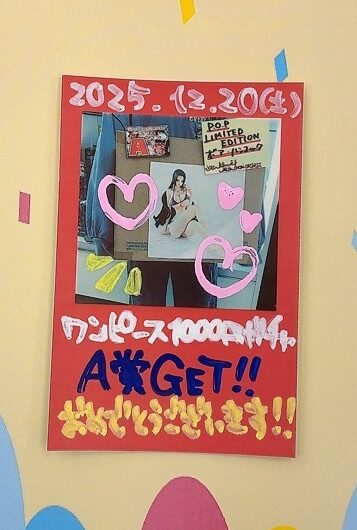 2025.12.20(土)
A
P.O.P
LIMITED
EDITION
ボア・ハンコック
ワンピース1000円ガチャ
A賞GET!!
おめでとうございます!!